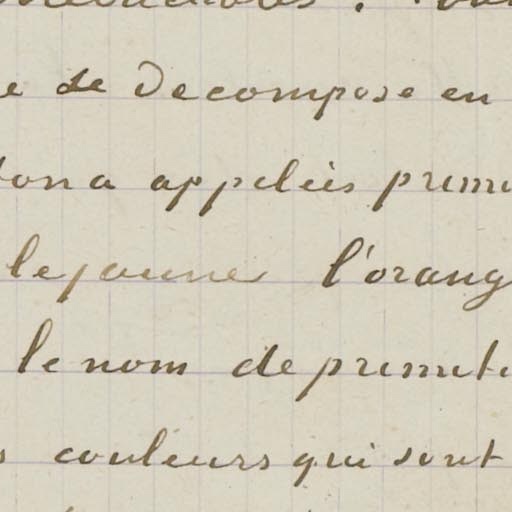 e se Decompose en
on a appelées primi
le jaune l'orang
le nom de primiti
s couleurs qui sont